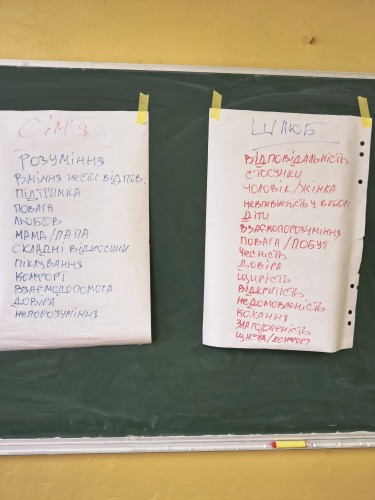 СІМ'Я
РОЗУМІННЯ
ВМІННЯ НЕСТИ ВІДПОВ.
ПІДТРИМКА
ПОВАГА
ЛЮБОВ
МАМА/ПАПА
СКЛАДНІ ВІДНОСИНИ
ПІКЛУВАННЯ
КОМФОРТ
ВЗАЄМОДОПОМОГА
ДОВІРА
НЕПОРОЗУМІННЯ
ШЛЮБ
ВІДПОВІДАЛЬНІСТЬ
СТОСУНКИ
ЧОЛОВІК/ЖІНКА
НЕВПЕВНЕНІСТЬ У ВИБОРІ
ДІТИ
ВЗАЄМОПОРОЗУМІННЯ
ПОВАГА/ПОБУТ
ЧЕСНІСТЬ
ДОВІРА
ЩИРІСТЬ
ВІДКРИТІСТЬ
НЕДОМОВЛЕНІСТЬ
КОХАННЯ
/КОМФОРТ